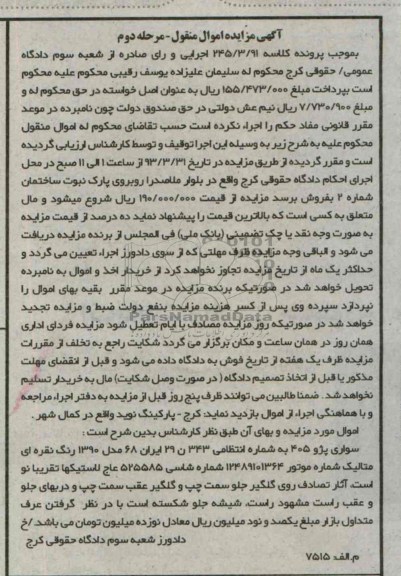 آگهی مزایده اموال منقول - مرحله دوم
بموجب پرونده کلاسه ۲۴۵/۳/۹۱ اجرایی و رای صادره از شعبه سوم دادگاه
عمومی/ حقوقی کرج محکوم له سلیمان علیزاده یوسف رقیبی محکوم علیه محکوم
است بپرداخت مبلغ ۱۵۵/۴۷۳/۰۰۰ ریال به عنوان اصل خواسته در حق محکوم له و
مبلغ ۷/۷۳۰/۹۰۰ ریال نیم عش دولتی در حق صندوق دولت چون نامبرده در موعد
مقرر قانونی مفاد حکم را اجراء نکرده است حسب تقاضای محکوم له اموال منقول
محکوم علیه به شرح زیر به وسیله این اجرا توقیف و توسط کارشناس ارزیابی گردیده
است و مقرر گردیده از طریق مزایده در تاریخ ۹۳/۳/۳۱ از ساعت ۱ الی ۱۱ صبح در محل
اجرای احکام دادگاه حقوقی کرج واقع در بلوار ملاصدرا روبروی پارک نبوت ساختمان
شماره ۲ بفروش برسد مزایده از قیمت ۱۹۰/۰۰۰/۰۰۰ ریال شروع میشود و مال
متعلق به کسی است که بالاترین قیمت را پیشنهاد نماید ده درصد از قیمت مزایده
به صورت وجه نقد یا چک تضمینی (بانک ملی) فی المجلس از برنده مزایده دریافت
می شود و الباقی وجه مزایده ظرف مهلتی که از سوی دادورز اجراء تعیین می گردد و
حداکثر یک ماه از تاریخ مزایده تجاوز نخواهد کرد از خریدار اخذ و اموال به نامبرده
تحویل خواهد شد در صورتیکه برنده مزایده در موعد مقرر بقیه بهای اموال را
نپردازد سپرده وی پس از کسر هزینه مزایده بنفع دولت ضبط و مزایده تجدید
خواهد شد در صورتیکه روز مزایده مصادف با ایام تعطیل شود مزایده فردای اداری
همان روز در همان ساعت و مکان برگزار می گردد شکایت راجع به تخلف از مقررات
مزایده ظرف یک هفته از تاریخ فوش به دادگاه داده می شود و قبل از انقضای مهلت
مذکور یا قبل از اتخاذ تصمیم دادگاه (در صورت وصل شکایت) مال به خریدار تسلیم
نخواهد شد. ضمنا طالبین می توانند ظرف پنج روز قبل از مزایده به دفتر اجراء مراجعه
و با هماهنگی اجراء از اموال بازدید نمایند: کرج - پارکینگ نوید واقع در کمال شهر.
اموال مورد مزایده و بهای آن طبق نظر کارشناس بدین شرح است:
سواری پژو ۴۰۵ به شماره انتظامی ۳۴۳ ن ۲۹ ایران ۶۸ مدل ۱۳۹۰ رنگ نقره ای
متالیک شماره موتور ۱۲۴۸۹۱۰۱۳۶۴ شماره شاسی ۵۲۵۵۸۵ عاج لاستیکها تقریبا نو
است، آثار تصادف روی گلگیر جلو سمت چپ و گلگیر عقب سمت چپ و دربهای جلو
و عقب راست مشهود راست، شیشه جلو شکسته است با در نظر گرفتن عرف
متداول بازار مبلغ یکصد و نود میلیون ریال معادل نوزده میلیون تومان می باشد. /خ
دادورز شعبه سوم دادگاه حقوقی کرج
م.الف: ۷۵۱۵
ParsNamadData